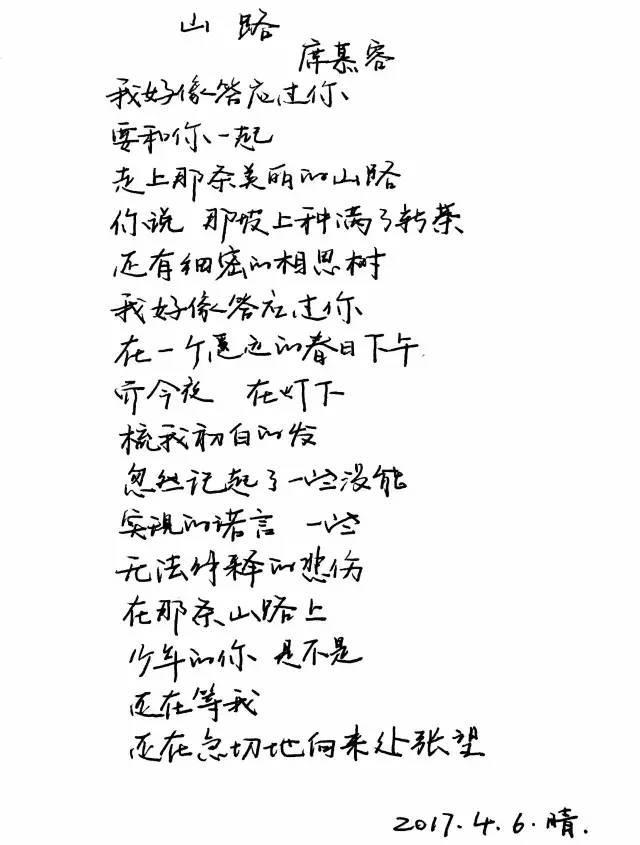 山路
席慕容
我好像答应过你
要和你一起
走上那条美丽的山路
你说 那坡上种满了新茶
还有细密的相思树
我好像答应过你
在一个遥远的春日下午
而今夜 在灯下
梳我初白的发
忽然记起了一些没能
实现的诺言 一些
无法解释的悲伤
在那条山路上
少年的你 是不是
还在等我
还在急切地向来处张望
2017.4.6.晴.